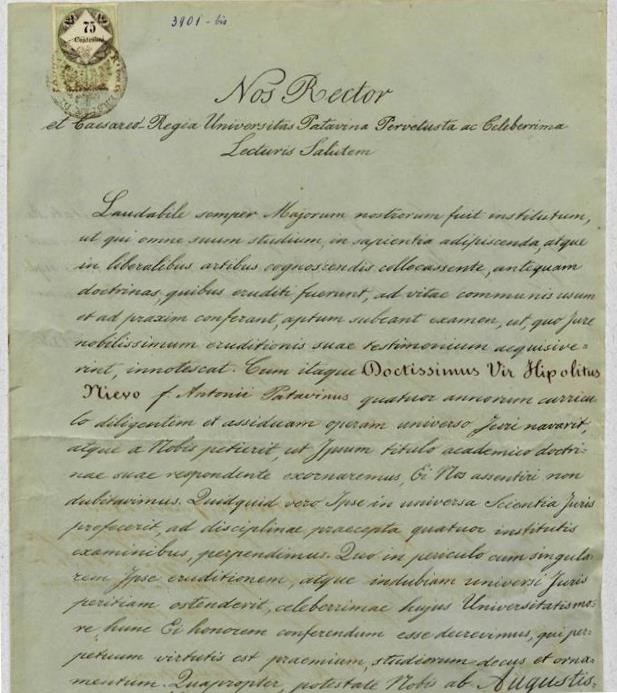 3901 - bis
75
Centesimi
Nos Rector
et Caesareo-Regia Universitas Patavina Pervetusta ac Celeberrima
Lecturis Salutem
Laudabile semper Majorum nostrorum fuit institutum,
ut qui omne suum studium in sapientia adipiscenda, atque
in liberalibus artibus cognoscendis collocassent, antequam
doctrinas, quibus eruditi fuerunt, ad vitae communis usum
et ad praxim conferant, aptum subeant examen, ut, quo Jure
nobilissimum eruditionis suae testimonium acquisive-
rint, innotescat. Cum itaque Doctissimus Vir Hipolitus
Nievo f. Antonii Patavinus quatuor annorum curricu-
lo diligentem et assiduam operam universo Juri navarit,
atque a Nobis petierit, ut Ipsum titulo academico doctri-
nae suae respondente exornaremus, Ei Nos assentiri non
dubitavimus. Quidquid vero Ipse in universa Scientia Juris
profecerit, ad disciplinae praecepta quatuor institutis
examinibus, perpendimus. Quo in periculo cum singula-
rem Ipse eruditionem, atque indubiam universi Juris
peritiam ostenderit, celeberrimae hujus Universitatis mo-
re hunc Ei honorem conferendum esse decrevimus, qui per-
petuum virtutis est praemium, studiorum decus et orna-
mentum. Quapropter, potestate Nobis ab Augustis.